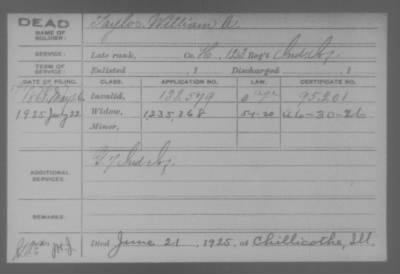 DEAD
NAME OF SOLDIER: Taylor William A.
SERVICE: Late rank, Co. H, 123 Reg't Ind. Inf.
TERM OF SERVICE: Enlisted , 1 Discharged , 1
DATE OF FILING. CLASS. APPLICATION NO. LAW. CERTIFICATE NO.
1868 Invalid, 138,579 95,201
1925 July 22 Widow, 1235,268 A6-30-26
Minor,
ADDITIONAL SERVICES: Ind. Inf.
REMARKS:
Died June 21, 1925, at Chillicothe, Ill.